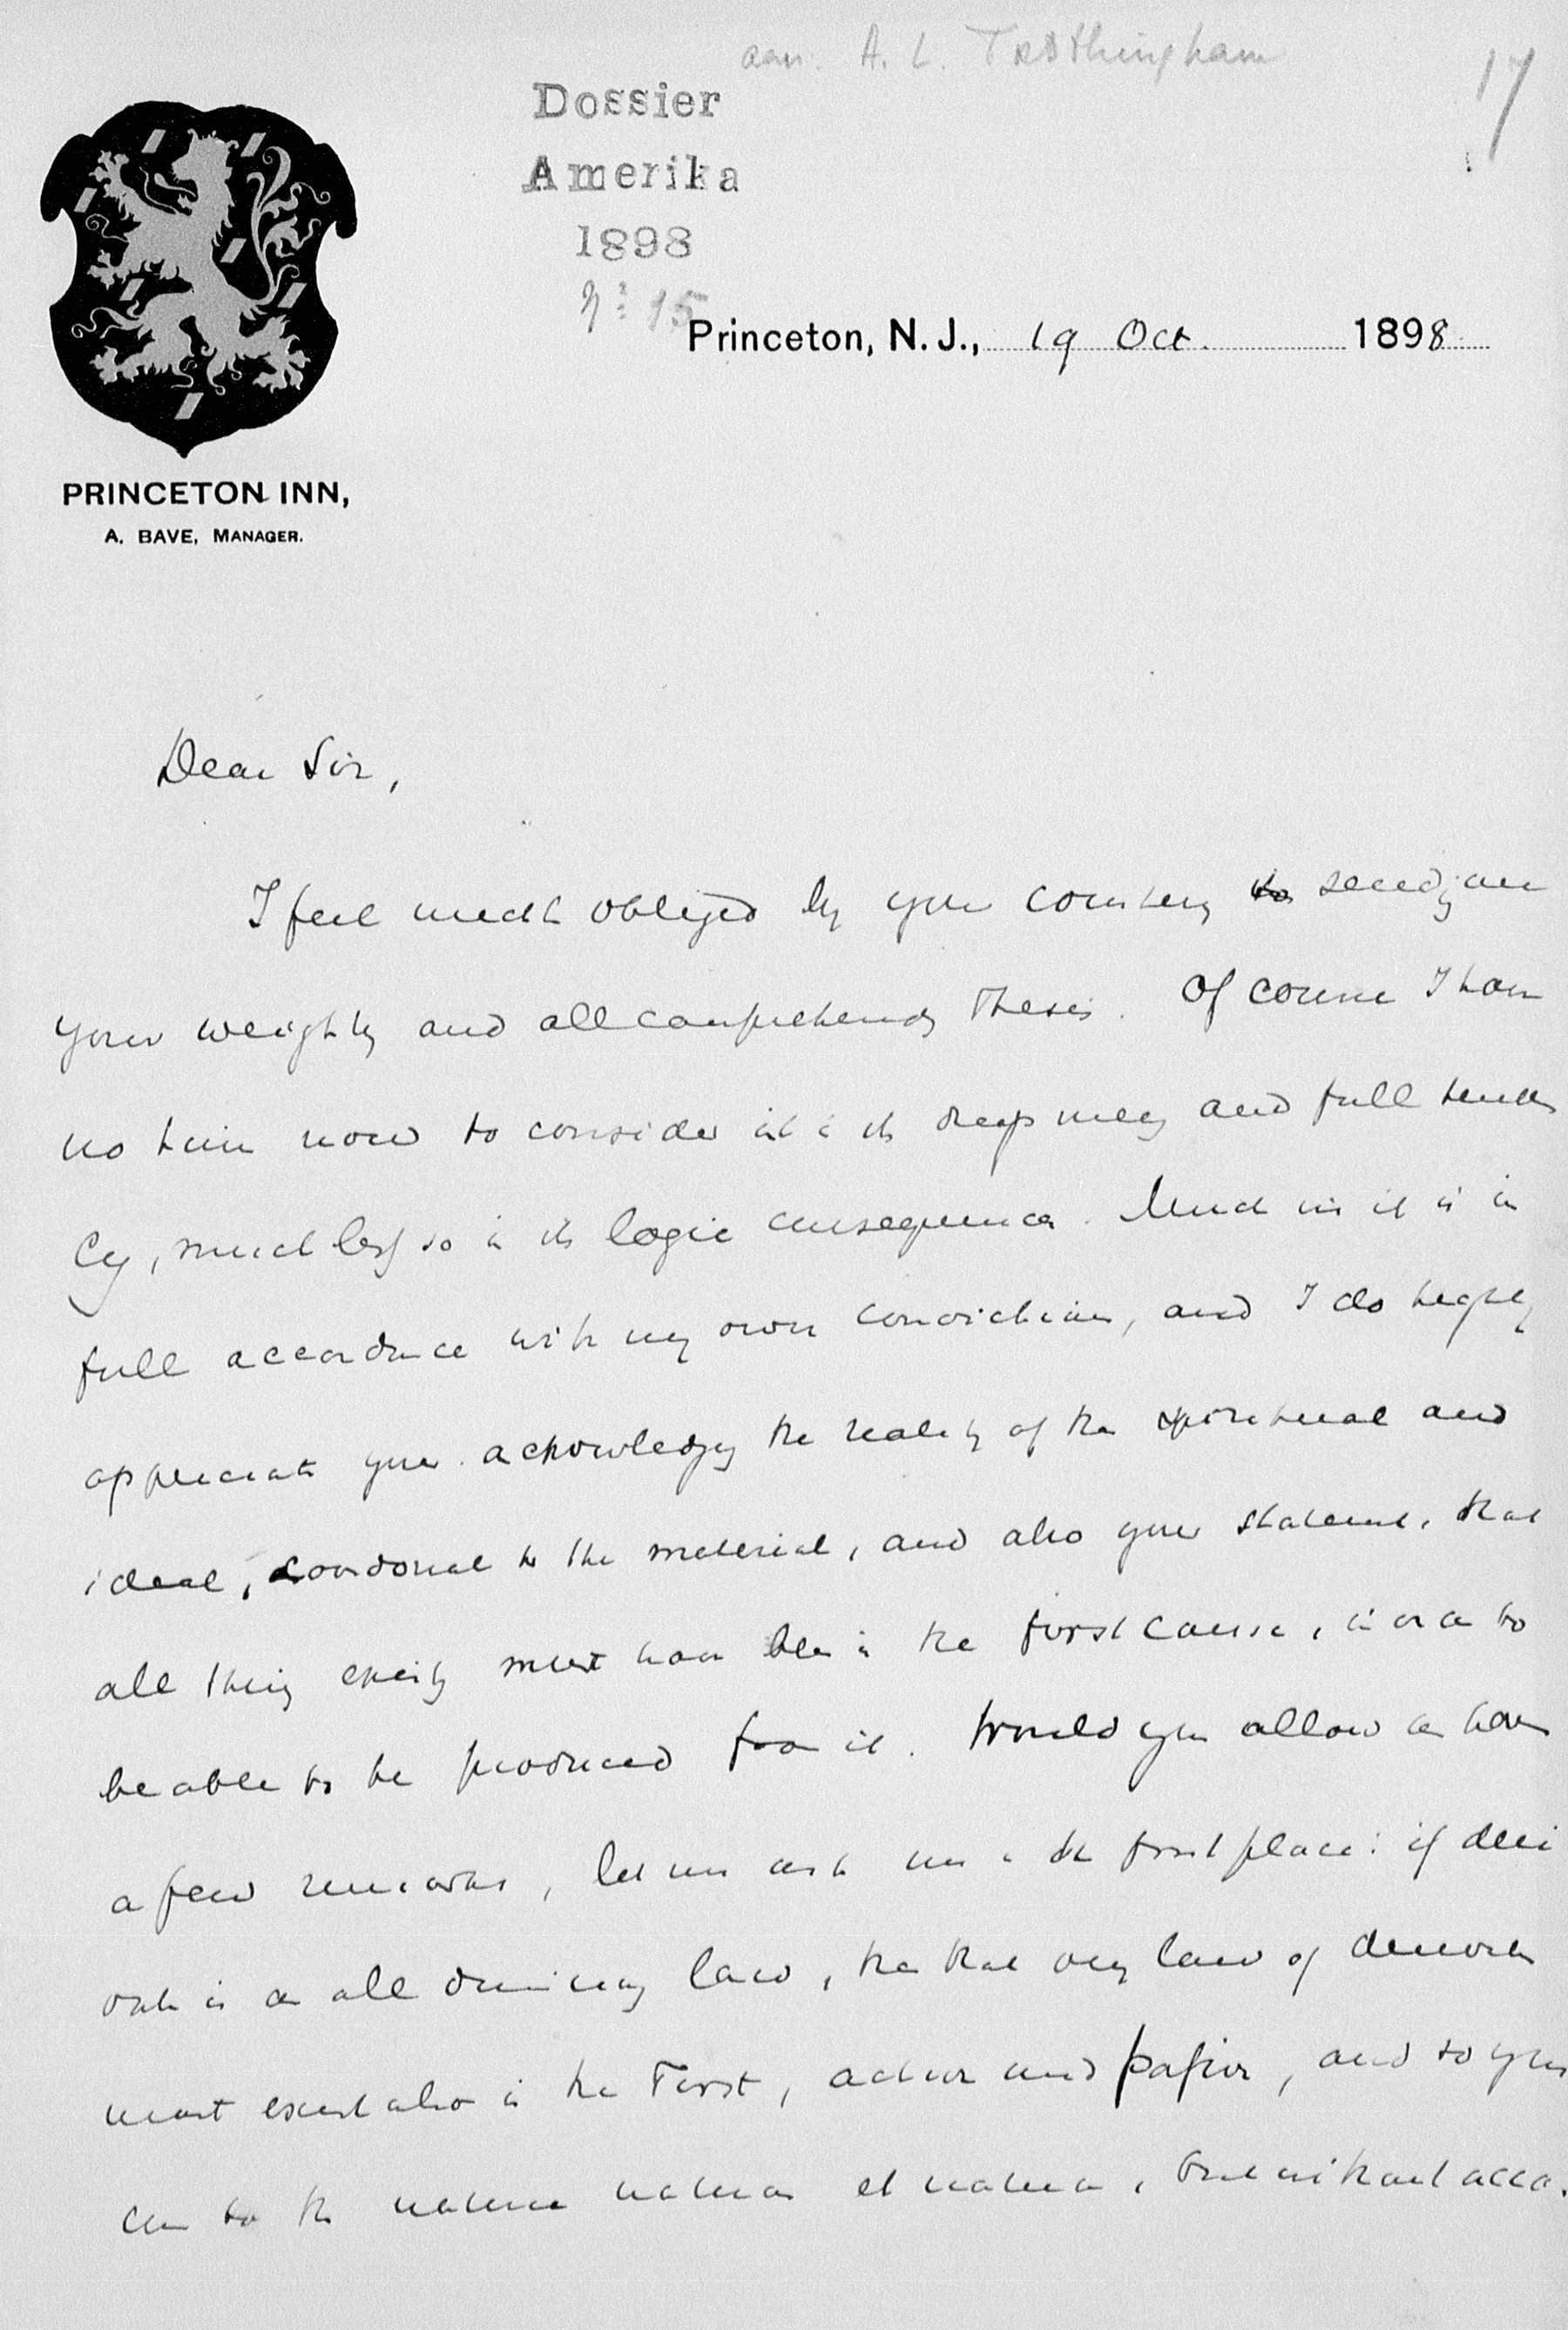 aan. A. L. Frothingham
17
Dossier
Amerika
1898
no 15
Princeton, N. J., 19 Oct. 1898
PRINCETON INN,
A. BAVE, MANAGER.
Dear Sir,
I feel much obliged by your courtesy
your weighty and all comprehending Thesis. Of course I have
no time now to consider it in its deep meaning and full tenden
cy, much less so in its logic consequences. Much in it is in
full accordance with my own convictions, and I do highly
appreciate your acknowledging the reality of the spiritual and
ideal, to the material, and also your statement, that
all things existing must have been in the first cause, in order to
be able to be produced from it. Would you allow me however
a few remarks, let me ask you in the first place: if
is an all law, then that very law of
must exist also in the First, active and passive, and so you
come to the natura naturans et naturata, but without